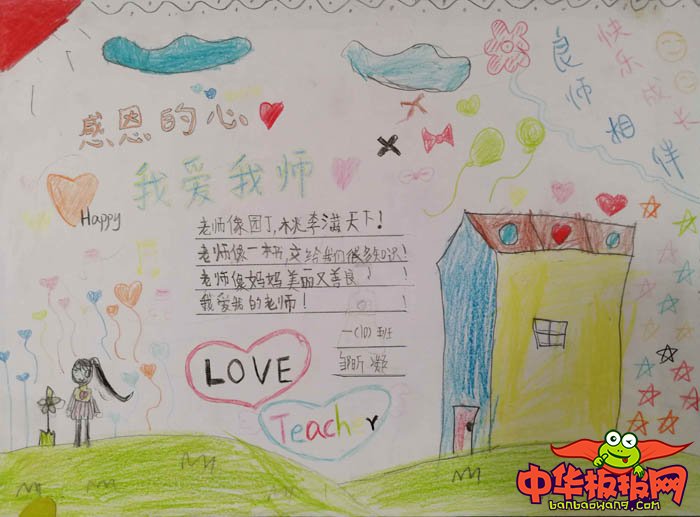 快乐成长
良师相伴
感恩的心
我爱我师
Happy
老师像园丁,桃李满天下!
老师像一本书,交给我们很多知识!
老师像妈妈美丽又善良! !
我爱我的老师! !
一(10)班
LOVE
Teacher
中华板报网
banbaowang.com